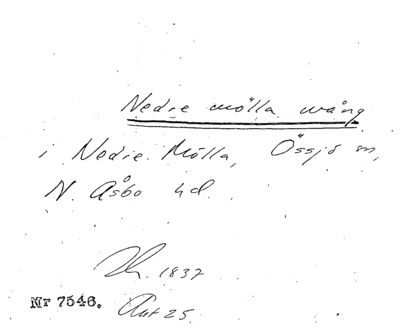 Nedre mölla wång
i Nedre Mölla, Össjö sn,
N. Åsbo hd.
1837
Nr 7546. Akt 25